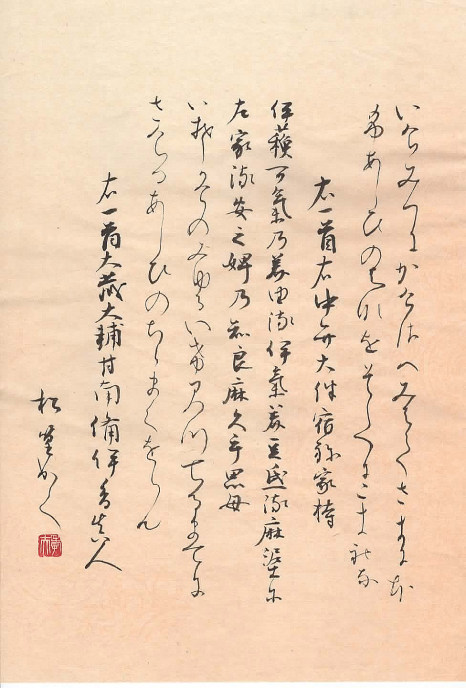 いけみつにかけさへみえてさきにほ
ふあしひのはなをそてにこきれな
右一首右中弁大伴宿祢家持
伊蘓可氣乃美由流伊氣美豆氐流麻埿尓
左家流安之婢乃知良麻久乎思母
いそかけのみゆるいけみつてるまてに
さけるあしひのちらまくをしも
右一首大蔵大輔甘南備伊香真人
松かく